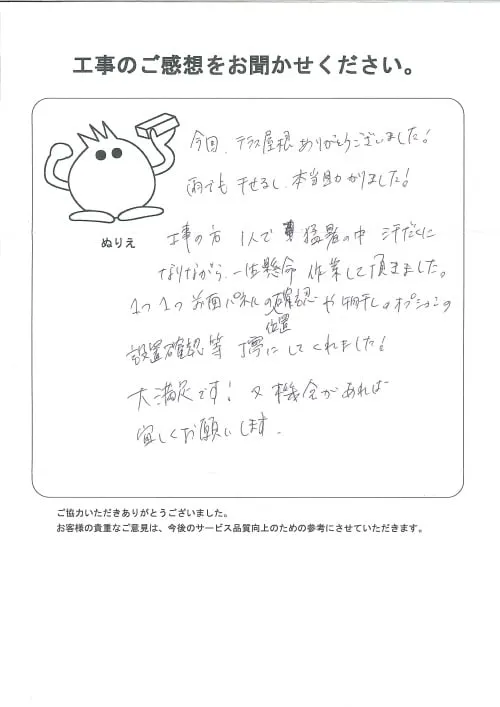 工事のご感想をお聞かせください。
ぬりえ
今回、テラス屋根ありがとうございました!
雨でも干せるし、本当助かりました!
工事の方 1人で 猛暑の中 汗だくに
なりながら、一生懸命 作業して頂きました。
1つ1つ 前面パネルの位置確認や物干しのオプションの
設置確認等 丁寧にしてくれました!
大満足です! 又機会があれば
宜しくお願いします。
ご協力いただきありがとうございました。
お客様の貴重なご意見は、今後のサービス品質向上のための参考にさせていただきます。